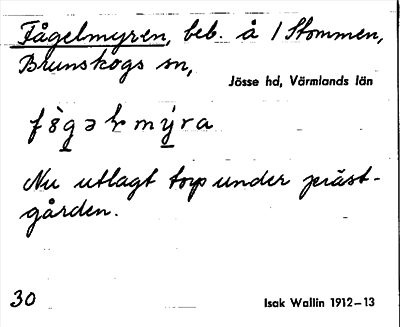 Fågelmyren, beb. å /Stommen,
Brunskogs sn,
Jösse hd, Värmlands län
Nu utlagt torp under präst-
gården.
30
Isak Wallin 1912-13